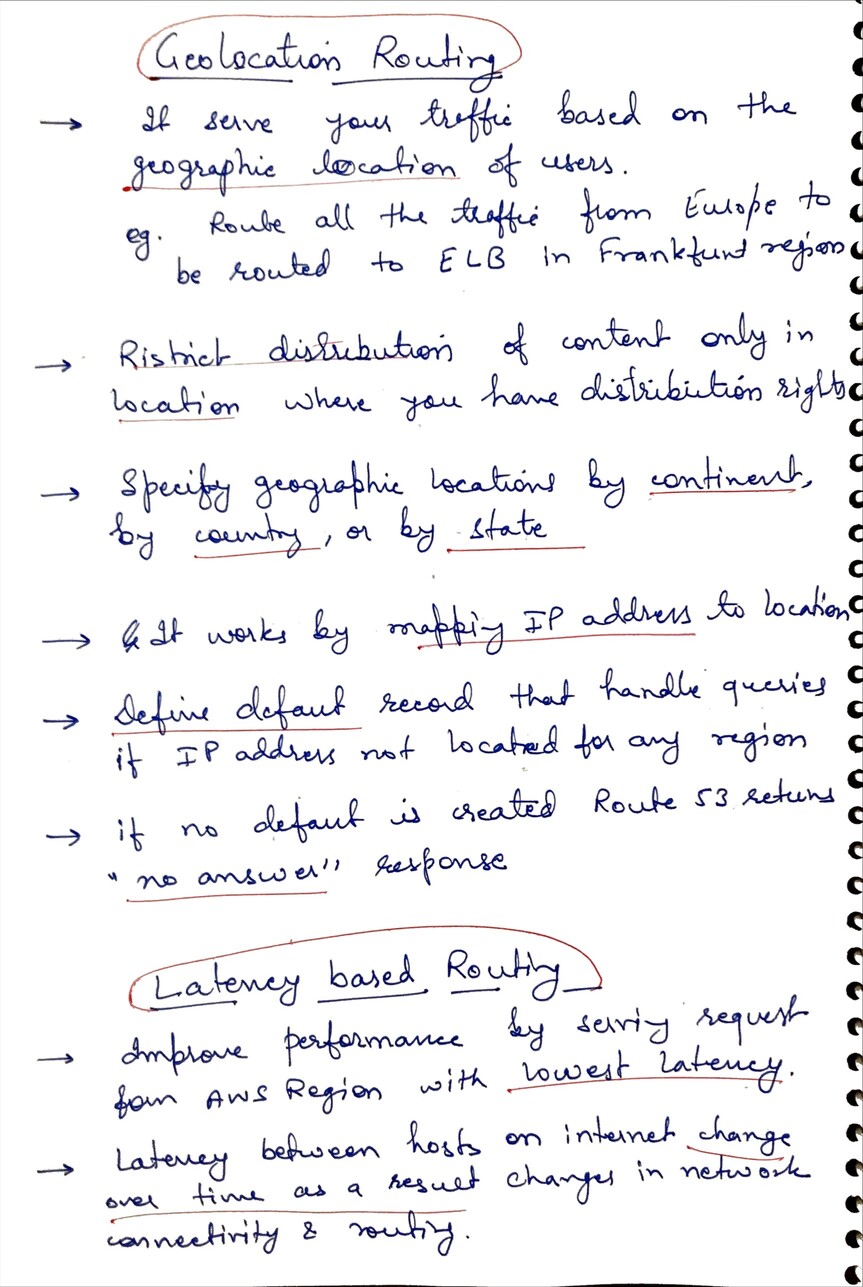 Geolocation Routing
→ It serve your traffic based on the
geographic location of users.
eg. Route all the traffic from Europe to
be routed to ELB in Frankfurt region
→ Ristrict distribution of content only in
location where you have distribution rights
→ Specify geographic locations by continent,
by country, or by state
→ It works by mapping IP address to location
→ Define defaut record that handle queries
if IP address not located for any region
→ if no defaut is created Route 53 returns
"no answer" response
Latency based Routing
→ Improve performance by serving request
from AWS Region with lowest latency.
→ Latency between hosts on internet change
over time as a result changes in network
connectivity & routing.